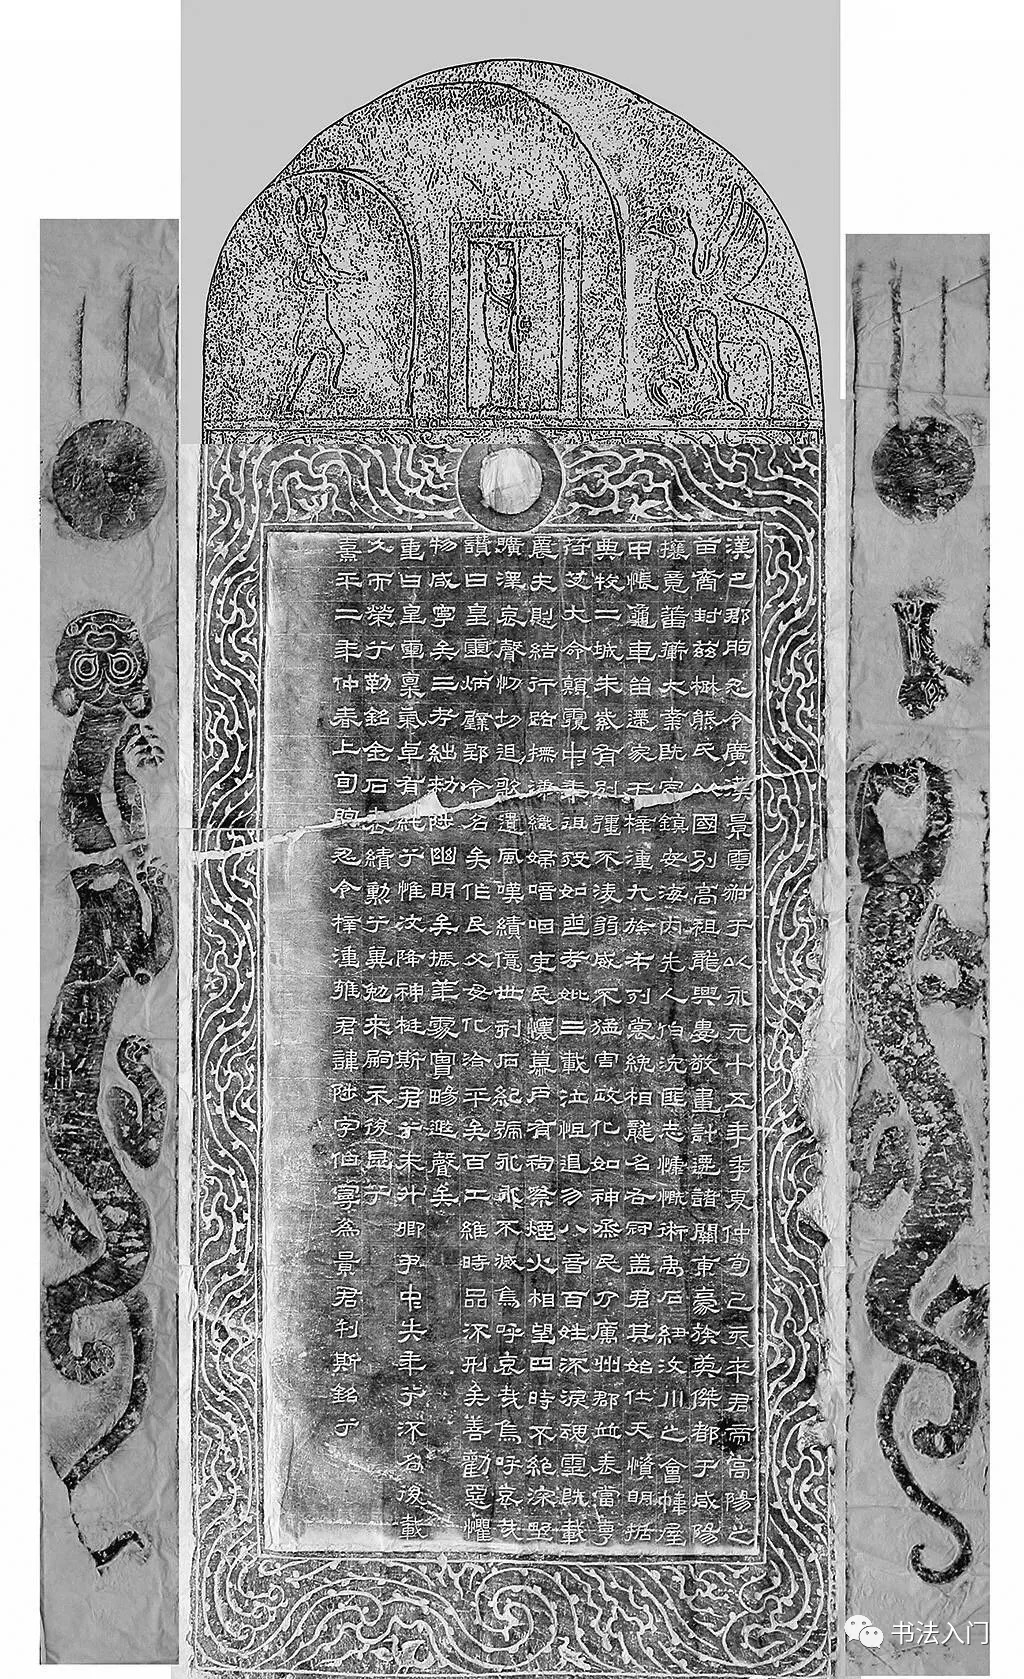 漢巴郡朐忍令廣漢景雲叔于以永元十五年季夏仲旬己亥卒君帝高陽之
苗裔封兹楚熊氏以國别高祖龍興婁敬畫計遷諸關東豪族英傑都于咸陽
攘竟蕃衛大業既定鎮安海内先人伯沇匪志慷慨術禹石紐汶川之會幃屋
甲帳龜車留遰家于梓潼九族布列裳絻相襲名右冠盖君其始仕天資明括
典牧二城朱紫有别彊不凌弱威不猛害政化如神烝民乃厲州郡並表當享
苻艾大命顛覆中年徂殁如喪考妣三載泣怛遏勿八音百姓流淚魂靈既載
農夫恻結行路撫涕織婦喑咽吏民懷慕户有祠祭煙火相望四時不絶深野
曠澤哀聲忉切追歌遺風嘆績億世刻石紀號永永不滅烏呼哀哉烏呼哀哉
讚曰皇靈炳璧郢令名矣作民父母化洽平矣百工維時品流刑矣善勸惡懼
物咸寧矣三考絀敕陟幽明矣振華處實暘遐聲矣
重曰皇靈禀氣卓有純兮惟汶降神梃斯君兮未升卿尹中失年兮流名後載
久而榮兮勒銘金石表績勳兮冀勉來嗣示後昆兮
熹平二年仲春上旬朐忍令梓潼雍君諱陟字伯寧為景君刊斯銘兮
书法入门